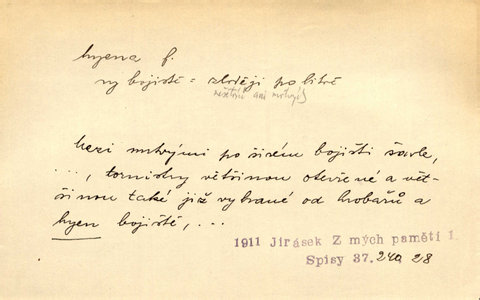 hyena f.
hy bojiště = zloději po bitvě
nešetřící ani mrtvých
Mezi mrtvými po širém bojišti šavle,
..., tornistry většinou otevřené a vět-
šinou také již vybrané od hrobařů a
hyen bojiště, ...
1911 Jirásek Z mých pamětí 1.
Spisy 37. 240 28